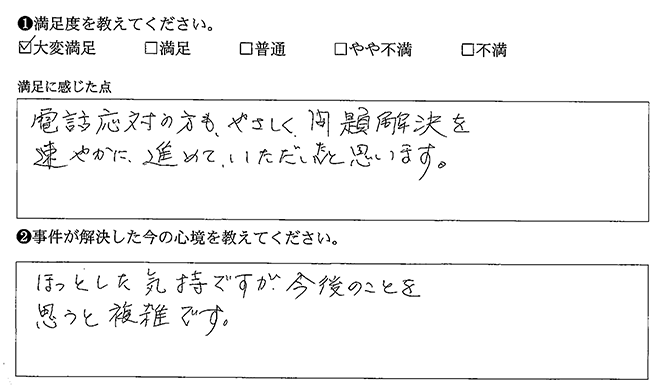 ❶満足度を教えてください。
☑大変満足 □満足 □普通 □やや不満 □不満
満足に感じた点
電話応対の方も、やさしく、問題解決を
速やかに、進めて、いただいたと思います。
❷事件が解決した今の心境を教えてください。
ほっとした気持ですが、今後のことを
思うと複雑です。